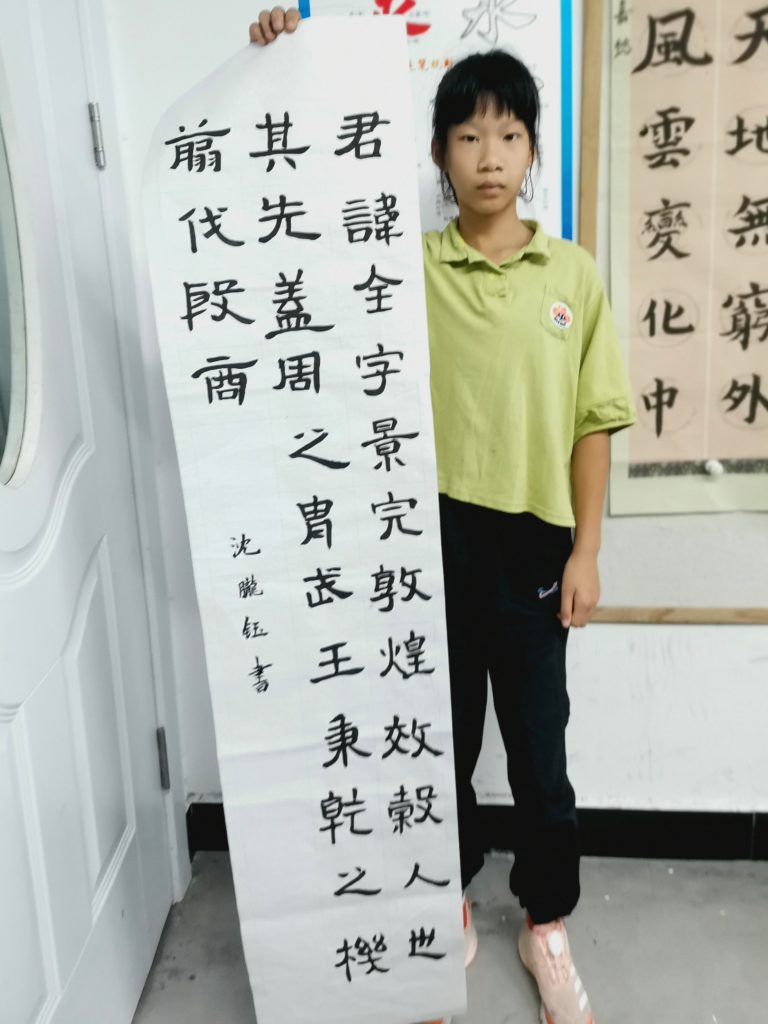 君諱全字景完敦煌效穀人也
其先蓋周之胄武王秉乾之機
翦伐殷商
沈朧钰書
天地無窮外
風雲變化中
水